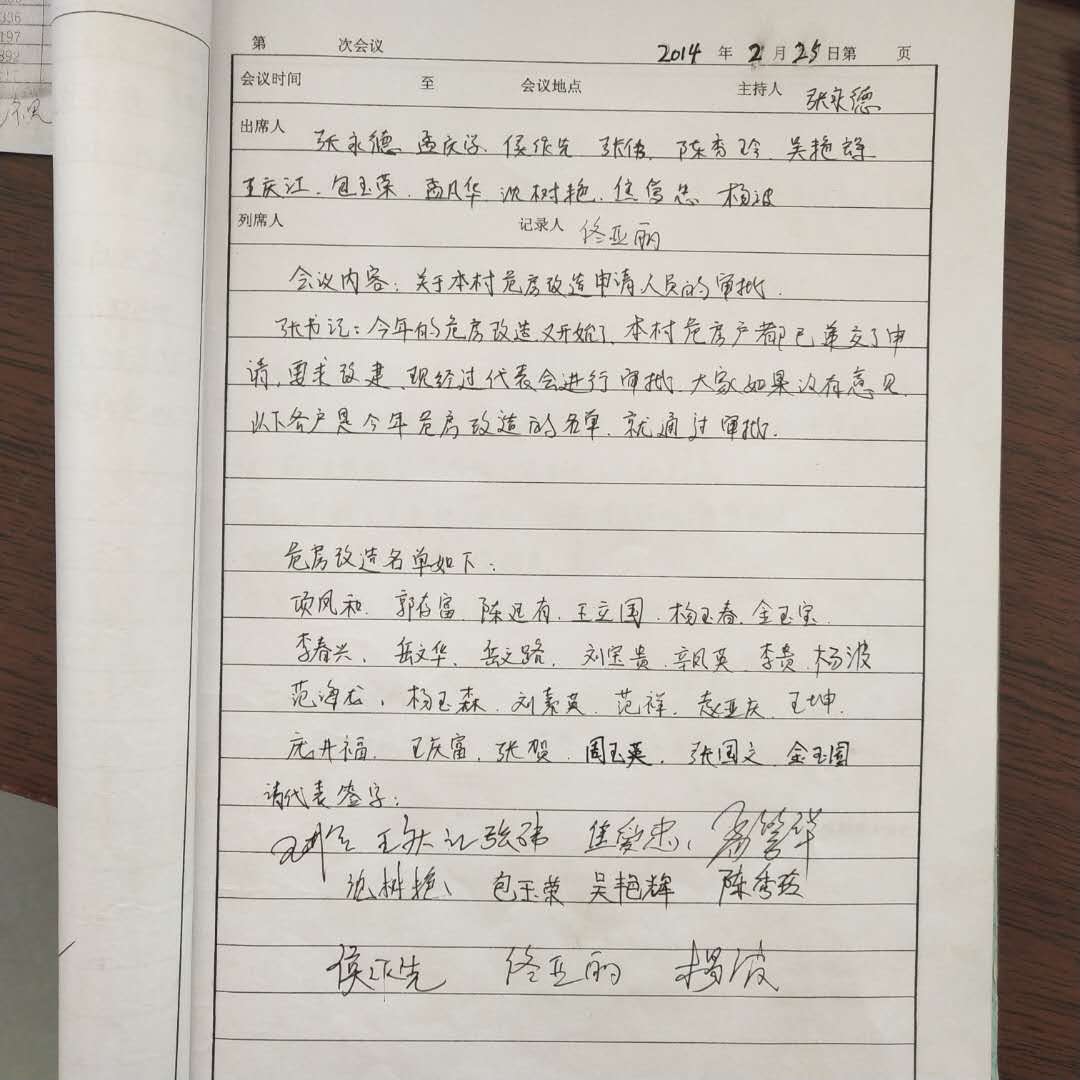 336
197
892
第 次会议 2014 年 2 月 25 日第 页
会议时间 至 会议地点 主持人 张永德
出席人 张永德 孟庆学 侯作先 张伟 陈秀玲 吴艳辉
王庆江 包玉荣 孟凡华 沈树艳 焦信忠 杨波
列席人 记录人 佟亚丽
会议内容：关于本村危房改造申请人员的审批.
张书记：今年的危房改造又开始了、本村危房户都已递交了申
请，要求改建、现经过代表会进行审批、大家如果没有意见、
以下各户是今年危房改造的名单、就通过审批.
危房改造名单如下：
项凤和、郭存富、陈迅有、王立国、杨玉春、金玉宝、
李春兴、岳文华、岳文路、刘宝贵、辛凤英、李贵、杨波
范海龙、杨玉森、刘素英、范祥、赵亚庆、王坤、
庞井福、王庆富、张贺、周玉英、张国文、金玉国
请代表签字：
王庆江 张伟 焦信忠、
沈树艳、 包玉荣 吴艳辉 陈秀玲
侯作先 佟亚丽 杨波